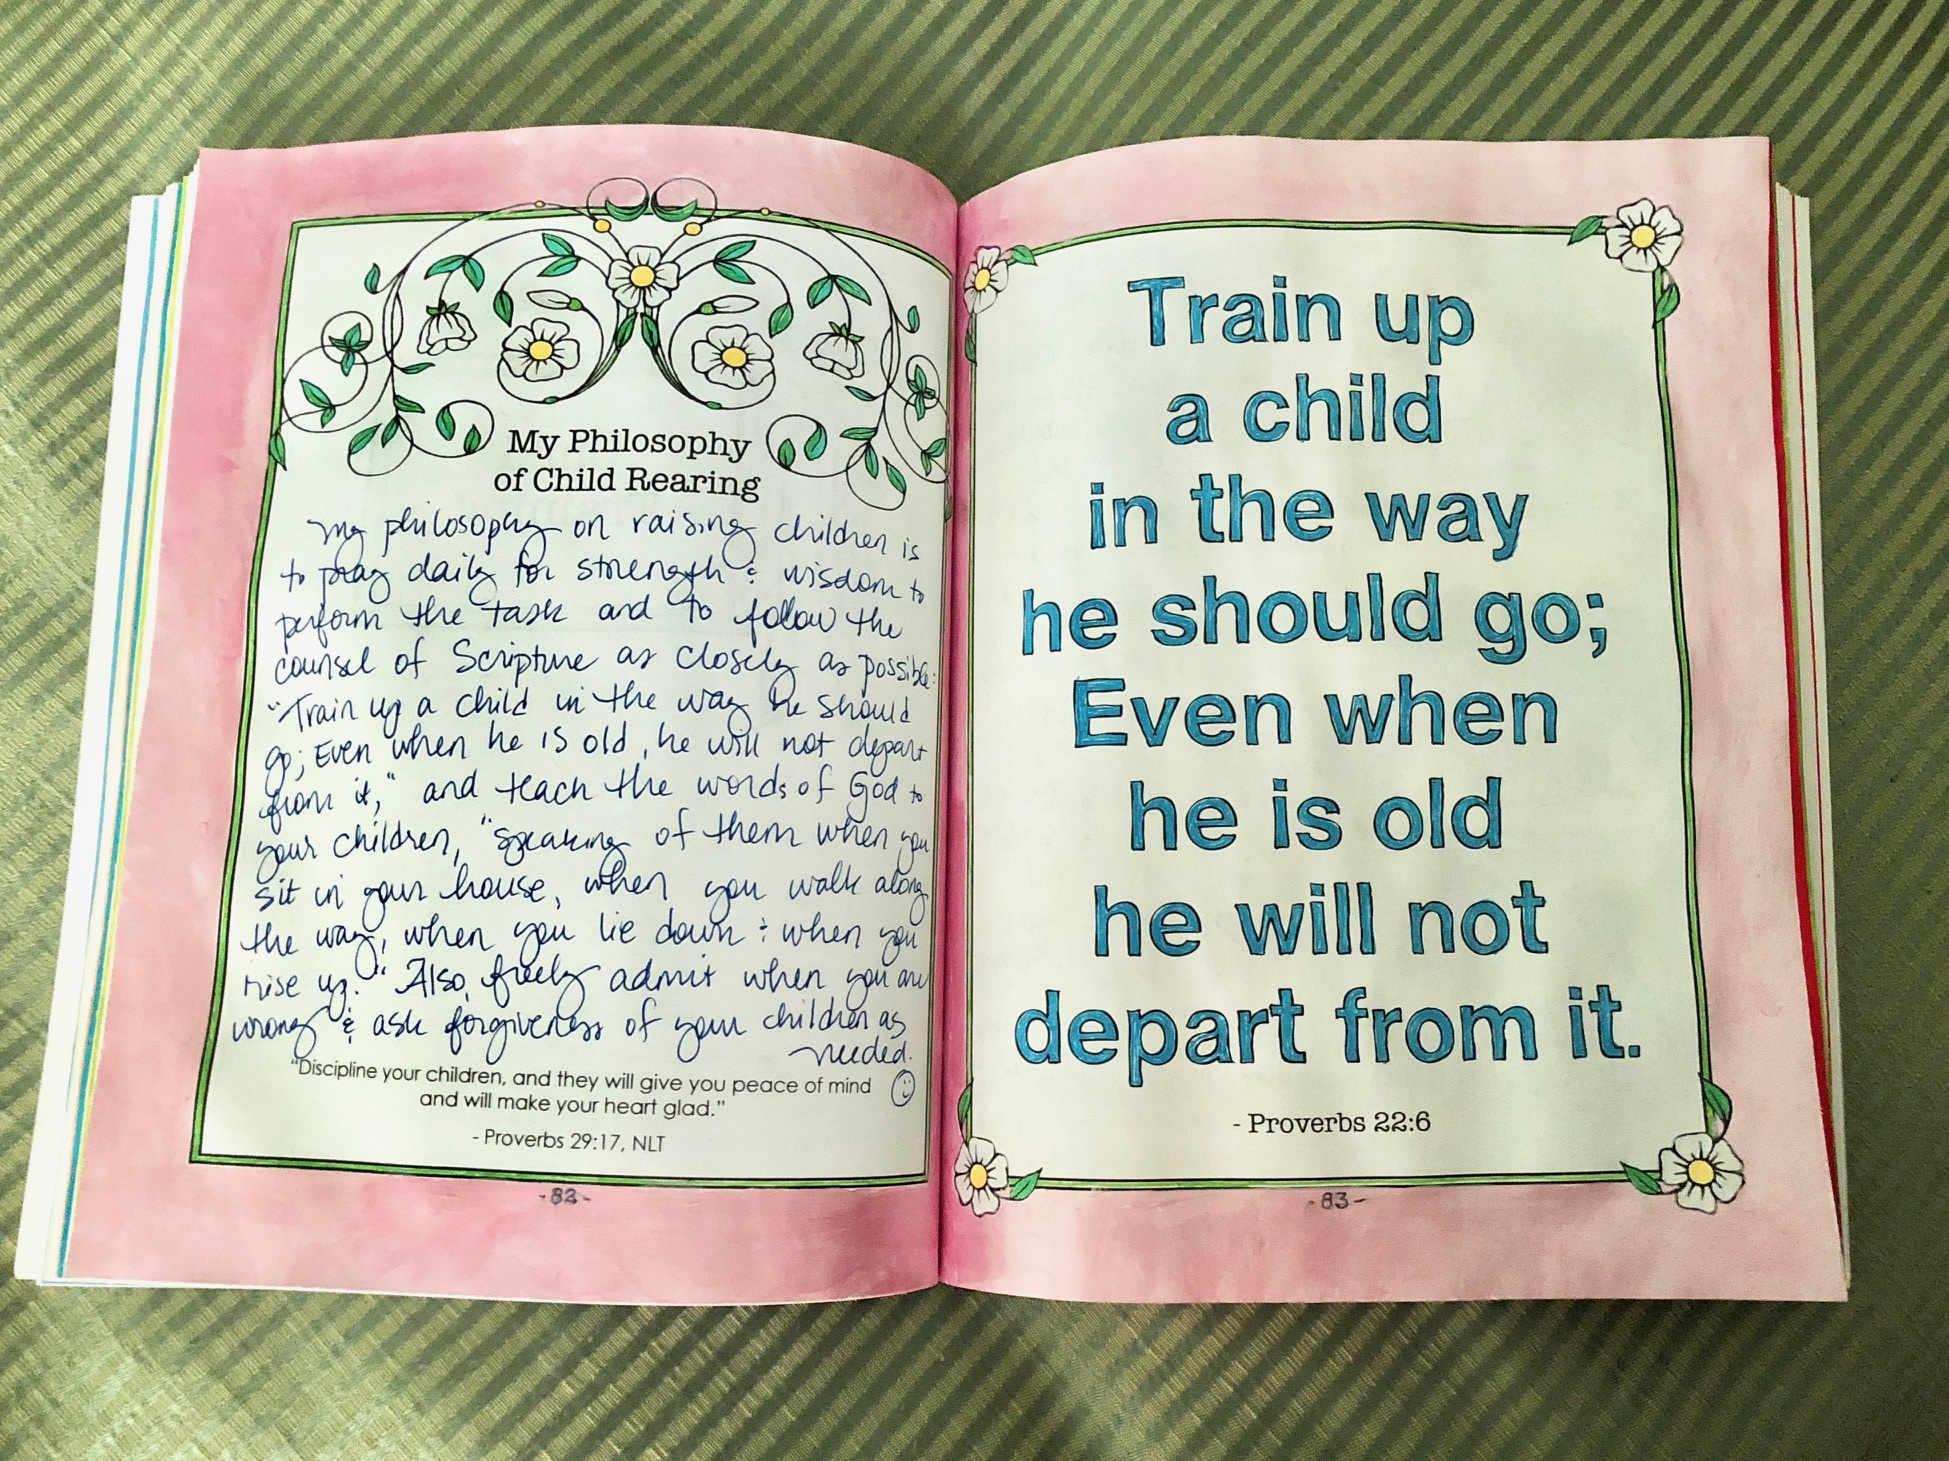 My Philosophy
of Child Rearing
My philosophy on raising children is
to pray daily for strength & wisdom to
perform the task and to follow the
counsel of Scripture as closely as possible:
"Train up a child in the way he should
go; Even when he is old, he will not depart
from it," and teach the words of God to
your children, "speaking of them when you
sit in your house, when you walk along
the way, when you lie down & when you
rise up." Also, freely admit when you are
wrong & ask forgiveness of your children as
needed.
"Discipline your children, and they will give you peace of mind
and will make your heart glad."
- Proverbs 29:17, NLT
-82-
Train up
a child
in the way
he should go;
Even when
he is old
he will not
depart from it.
- Proverbs 22:6
-83-